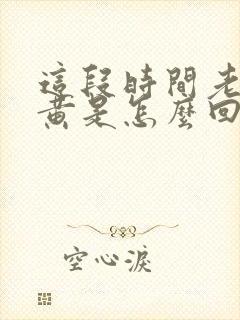 這段時間老
黃是怎麼回
空心淚